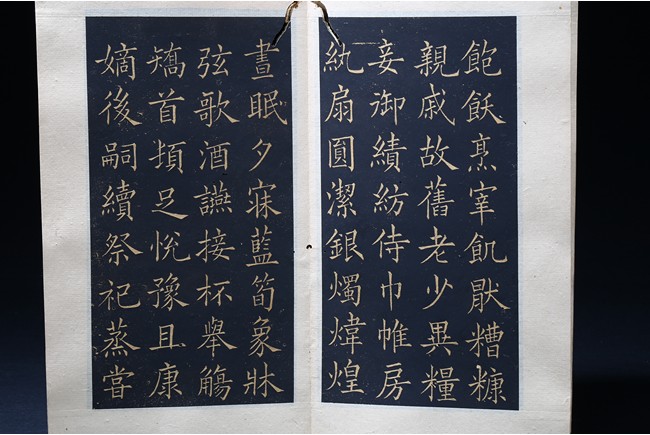 飽飫烹宰飢猒糟糠
親戚故舊老少異糧
妾御績紡侍巾帷房
紈扇圓潔銀燭煒煌
晝眠夕寐藍筍象牀
弦歌酒讌接杯舉觴
矯首頓足悅豫且康
嫡後嗣續祭祀蒸嘗